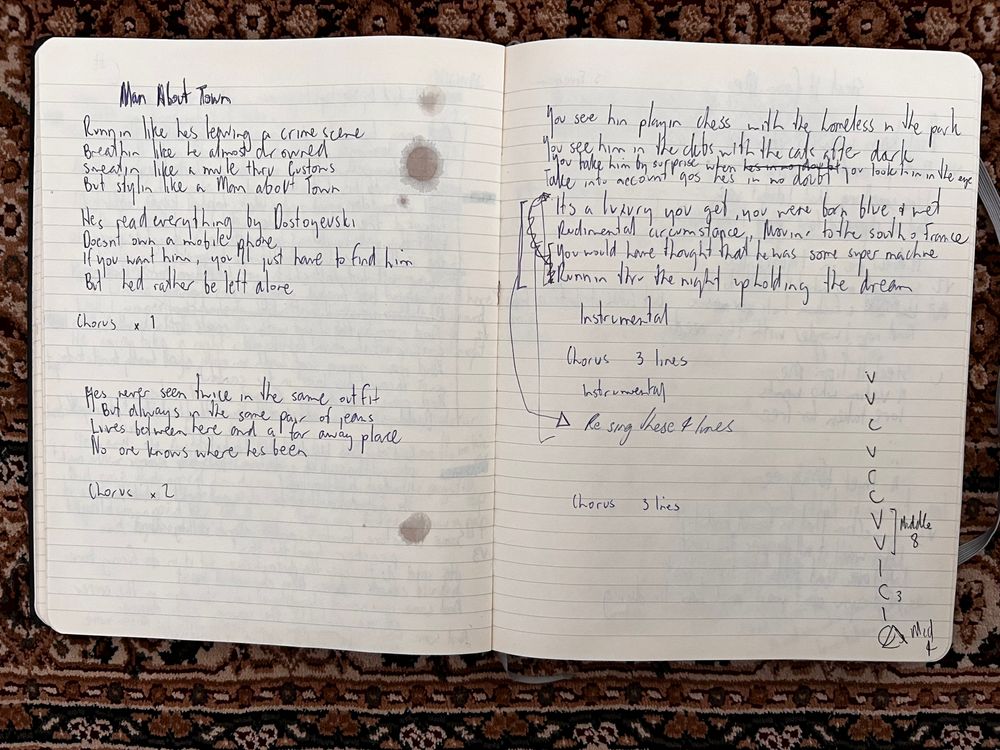 Man About Town
Runnin like hes leaving a crime scene
Breathin like he almost drowned
Sweatin like a mule thru Customs
But stylin like a Man about Town
Hes read everything by Dostoyevski
Doesnt own a mobile phone
If you want him, you'll just have to find him
But hed rather be left alone
Chorus x 1
Hes never seen twice in the same outfit
But always in the same pair of jeans
Lives between here and a far away place
No one knows where hes been
Chorus x 2
You see him playin chess with the homeless in the park
You see him in the clubs with the cats after dark
You take him by surprise when hes in no doubt you look him in the eye
Take into account cos hes in no doubt
Its a luxury you get, you were born blue & wet
Rudimental circumstance, Moving to the south o France
You would have thought that he was some super machine
Runnin thru the night upholding the dream
Instrumental
Chorus 3 lines
Instrumental
Re sing these 4 lines
Chorus 3 lines
V
V
C
V
C
C
V
V
Middle
8
I
C 3
I
Mid
4